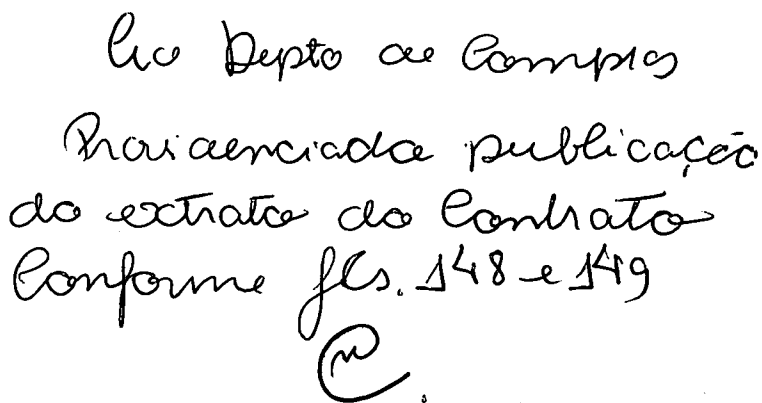 Ao Depto de Compras
Providenciada publicação
do extrato do Contrato
Conforme fls. 148 e 149